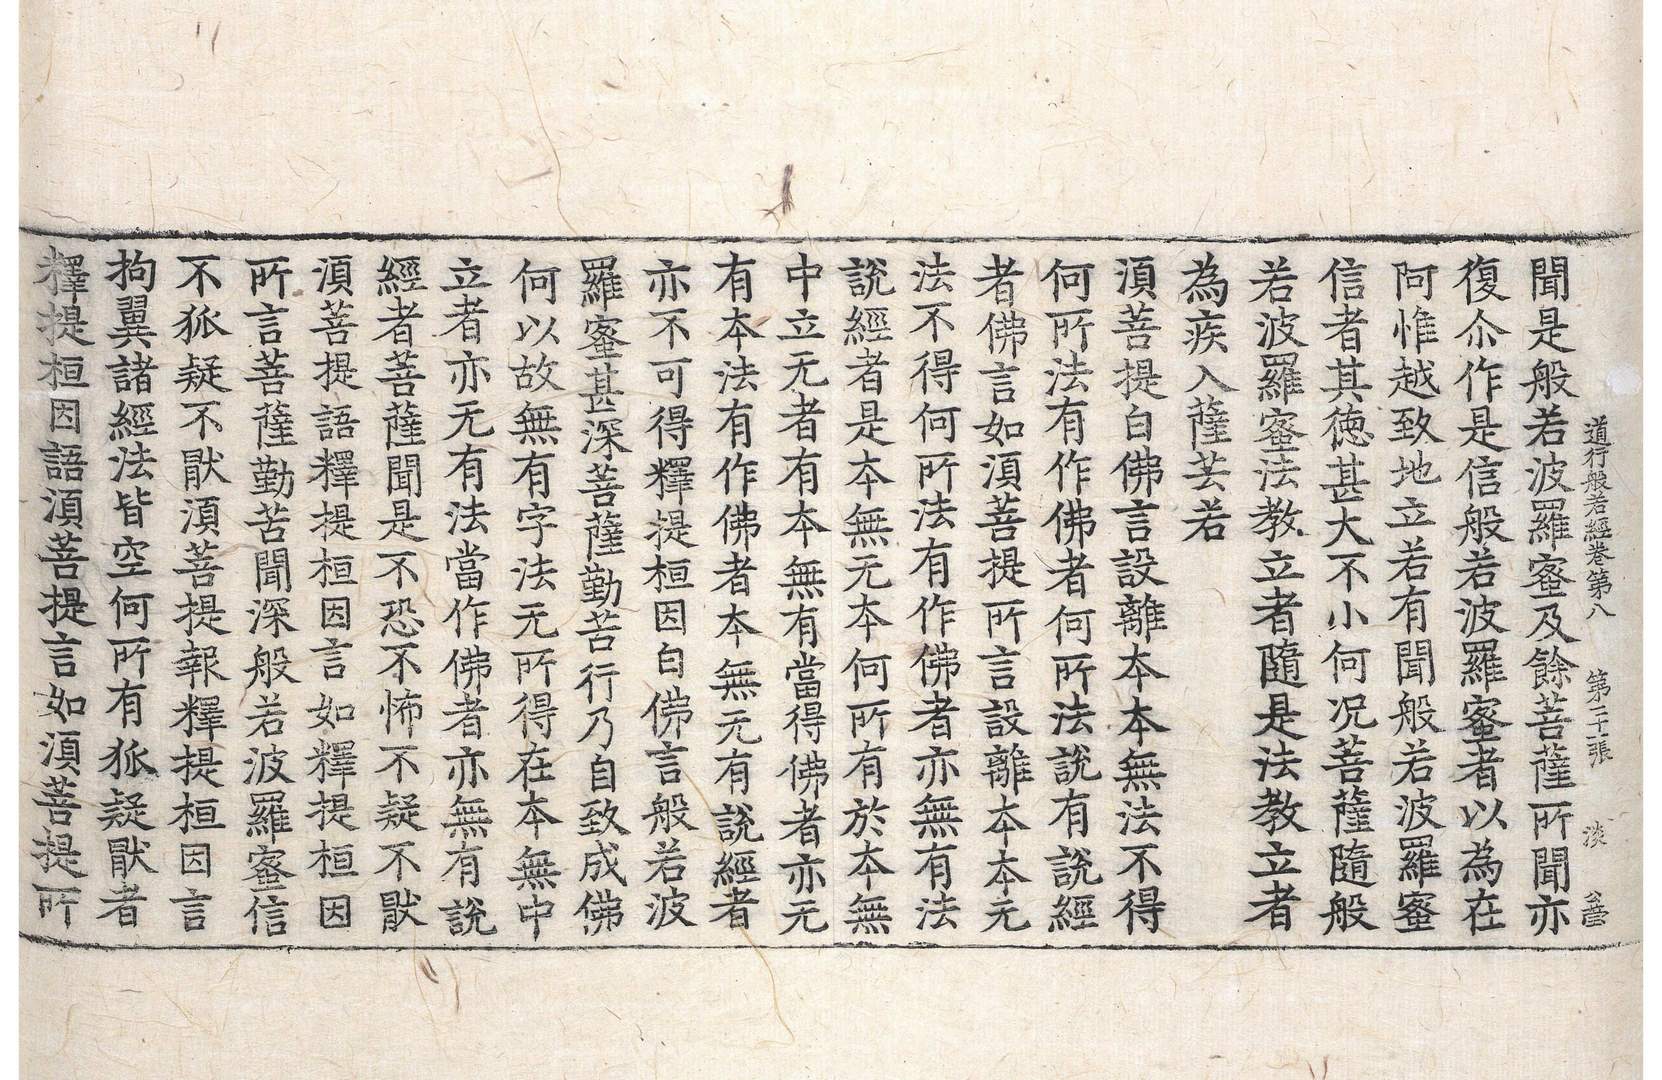 道行般若經卷第八 第二十張 淡
聞是般若波羅蜜及餘菩薩所聞亦
復尒作是信般若波羅蜜者以為在
阿惟越致地立若有聞般若波羅蜜
信者其徳甚大不小何况菩薩隨般
若波羅蜜法教立者隨是法教立者
為疾入薩芸若
湏菩提白佛言設離本本無法不得
何所法有作佛者何所法說有說經
者佛言如湏菩提所言設離本本无
法不得何所法有作佛者亦無有法
說經者是本無无本何所有於本無
中立无者有本無有當得佛者亦无
有本法有作佛者本無无有說經者
亦不可得釋提桓因白佛言般若波
羅蜜甚深菩薩勤苦行乃自致成佛
何以故無有字法无所得在本無中
立者亦无有法當作佛者亦無有說
經者菩薩聞是不恐不怖不疑不猒
湏菩提語釋提桓因言如釋提桓因
所言菩薩勤苦聞深般若波羅蜜信
不狐疑不猒湏菩提報釋提桓因言
拘翼諸經法皆空何所有狐疑猒者
釋提桓因語湏菩提言如湏菩提所